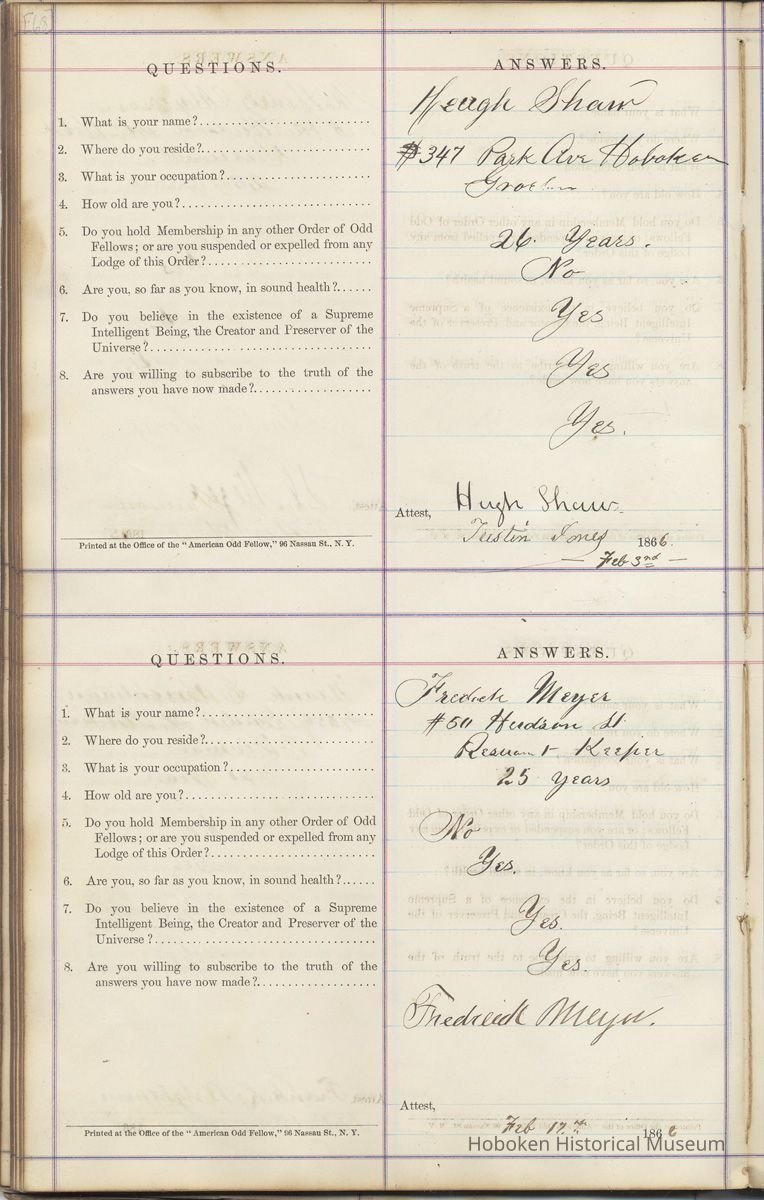 F68
QUESTIONS.
1. What is your name?
2. Where do you reside?
3. What is your occupation?
4. How old are you?
5. Do you hold Membership in any other Order of Odd
Fellows; or are you suspended or expelled from any
Lodge of this Order?
6. Are you, so far as you know, in sound health?
7. Do you believe in the existence of a Supreme
Intelligent Being, the Creator and Preserver of the
Universe?
8. Are you willing to subscribe to the truth of the
answers you have now made?
Printed at the Office of the "American Odd Fellow," 96 Nassau St., N. Y.
ANSWERS.
Heugh Shaw
#347 Park Ave Hoboken
26 Years.
No
Yes
Yes
Yes.
Attest, Hugh Shaw
Tristin Jones 1866.
Feb 3rd
QUESTIONS.
1. What is your name?
2. Where do you reside?
3. What is your occupation?
4. How old are you?
5. Do you hold Membership in any other Order of Odd
Fellows; or are you suspended or expelled from any
Lodge of this Order?
6. Are you, so far as you know, in sound health?
7. Do you believe in the existence of a Supreme
Intelligent Being, the Creator and Preserver of the
Universe?
8. Are you willing to subscribe to the truth of the
answers you have now made?
Printed at the Office of the "American Odd Fellow," 96 Nassau St., N. Y.
ANSWERS.
Fredrick Meyer
Hudson St
Keeper
25 years
No
Yes.
Yes.
Yes.
Fredrick Meyer.
Attest,
Feb 17th 1866
Hoboken Historical Museum